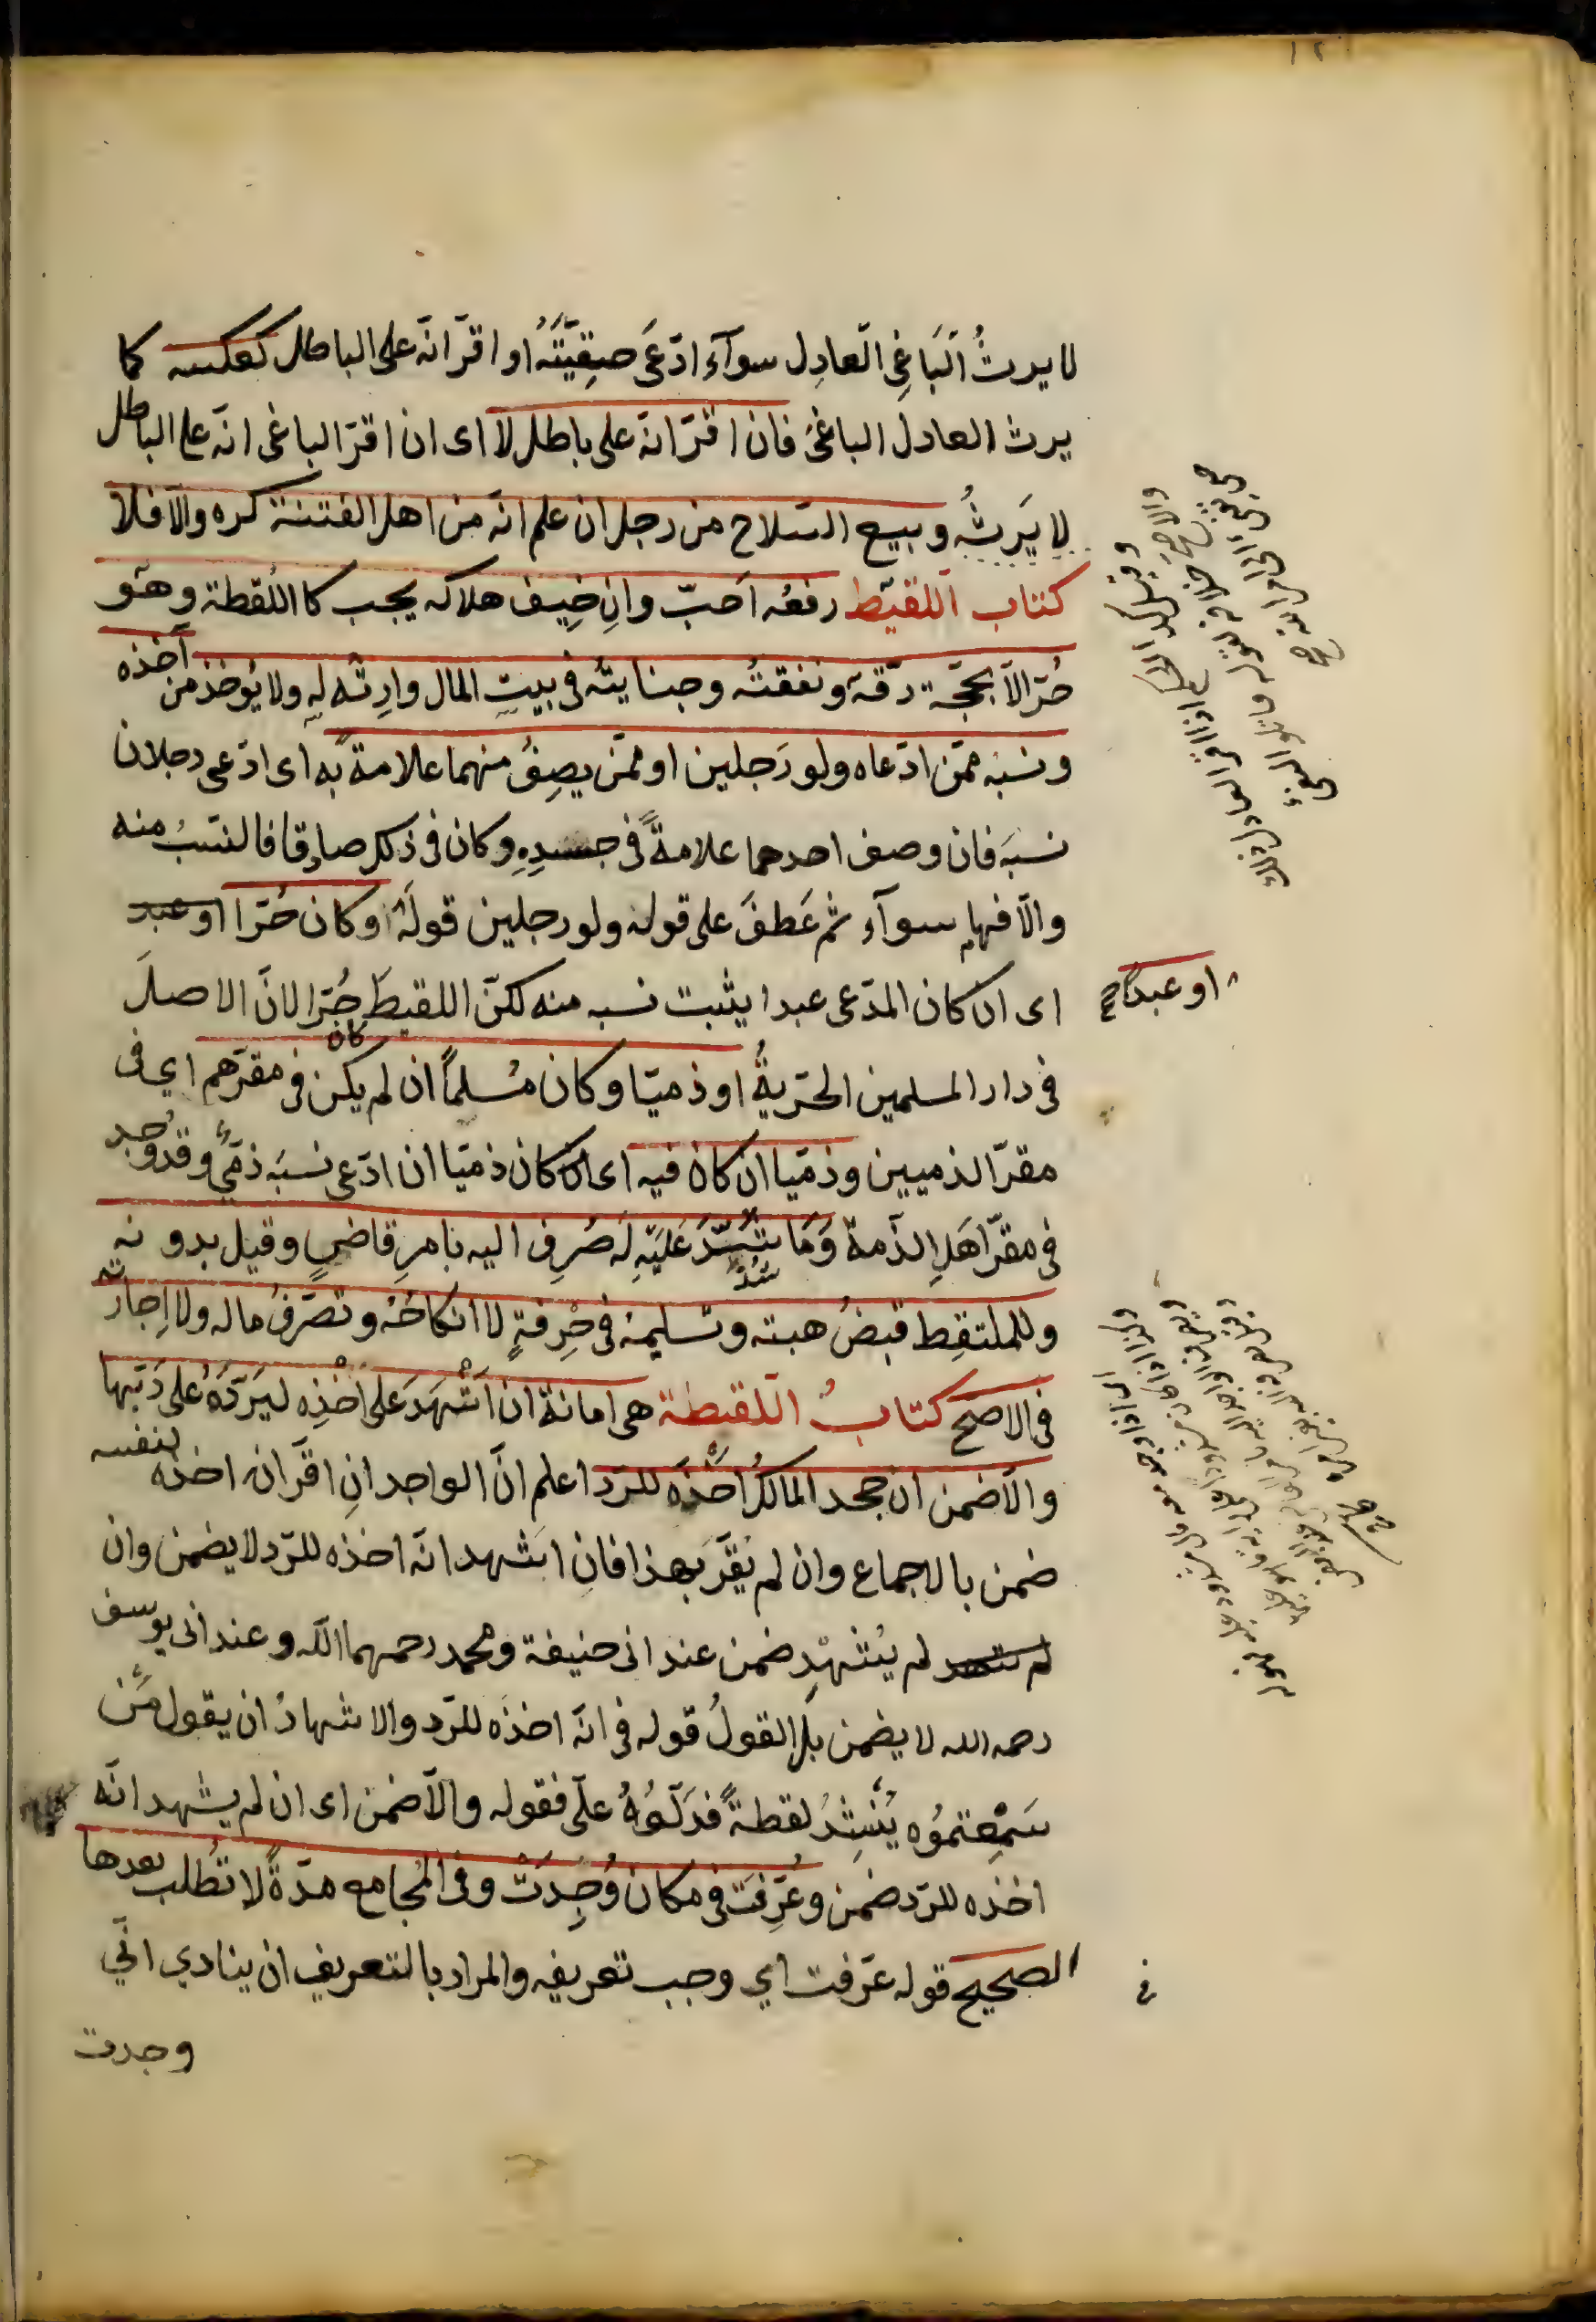 لا يرثُ الَباغِى العادِل سوآء ادّعَى حقِيّتَهُ او اقرّ انّه على الباطل كعكسه كما
يرث العادل الباغىَ فان اقرّ انه على باطل لا اى ان اقرّ الباغى انّه على الباطل
لا يَرِثُه وبيع السلاح من رجل ان علم انّه من اهل الفتنة كره والّا فلا
كتاب اللقيط رفعُه احبّ وانِ خِيف هلاكه يجب كا اللُقطة وهو
حُرّ الّا بحجّة رقّه ونفقتُه وجنايتُه فى بيتِ المال وارِثه له ولا يُوخذ من آخذه
ونسبُه ممّن ادّعاه ولو رَجلين او ممّن يصِفُ منهما علامةً به اى ادّعى رجلان
نسبَه فان وصف احدهما علامةً فى جسدِهِ وكان فى ذلك صادقا فالنسَبُ منه
والّا فهما سوآء ثم عَطفَ على قوله ولو رجلين قولَهُ او كان حُرّا او عبد
او عبدًا صح
اى ان كان المدّعى عبدا يثبت نسبه منه لكنّ اللقيطَ حُرّ لانّ الاصلَ
فى دار المسلمين الحرّيةُ او ذميّا وكان مُسلماً ان لم يكن فى مقرّهم اي فى
مقرّ الذميين وذمّيا ان كان فيه اى كان ذمّيا ان ادّعى نسبَه ذمّىٌ وقد وُجد
فى مقرّ اهَلِ الذّمة وَمَا شُدّ عَليَهِ لَه صُرِف اليه بامرِ قاضٍ وقيل بدونه
وللملتقِط قبضُ هبته وتسليمه فى حِرفةٍ لا انكاحُهُ وتصَرّفُ ماله ولا اِجارته
فى الاصحّ كتابُ اللقطة هى امانة ان اَشْهَدَ على اَخْذِه ليَردّهُ على رَبّها
والّا ضمن ان جحد المالكُ اخْذَه للرّد اعلم انّ الواجد انِ اقرّ انه اخذه لنفسه
ضمن بالاجماع وان لم يُقرّ بهذا فانِ اَشهد انّه اخذه للرّد لا يضمن وان
لم يُشهِد ضمن عند ابى حنيفة ومحمد رحمهما اللّه وعند ابى يوسف
رحمه الله لا يضمن بلِ القولُ قوله فى انّه اخذَه للرّد والاشهادُ ان يقول مَن
سَمِعتموُه يُنشِدُ لقطةً فدَلّوُهُ علىّ فقوله والّا ضمن اى ان لم يشهد انّه
اخذه للرّد ضمن وعُرِّفت فى مكان وُجِدَتْ وفى المجامع مدّةً لا تُطلب بعدها
فى
الصحيح قوله عرّفت اي وجب تعريفه والمراد بالتعريف ان ينادي انّي
وجدت